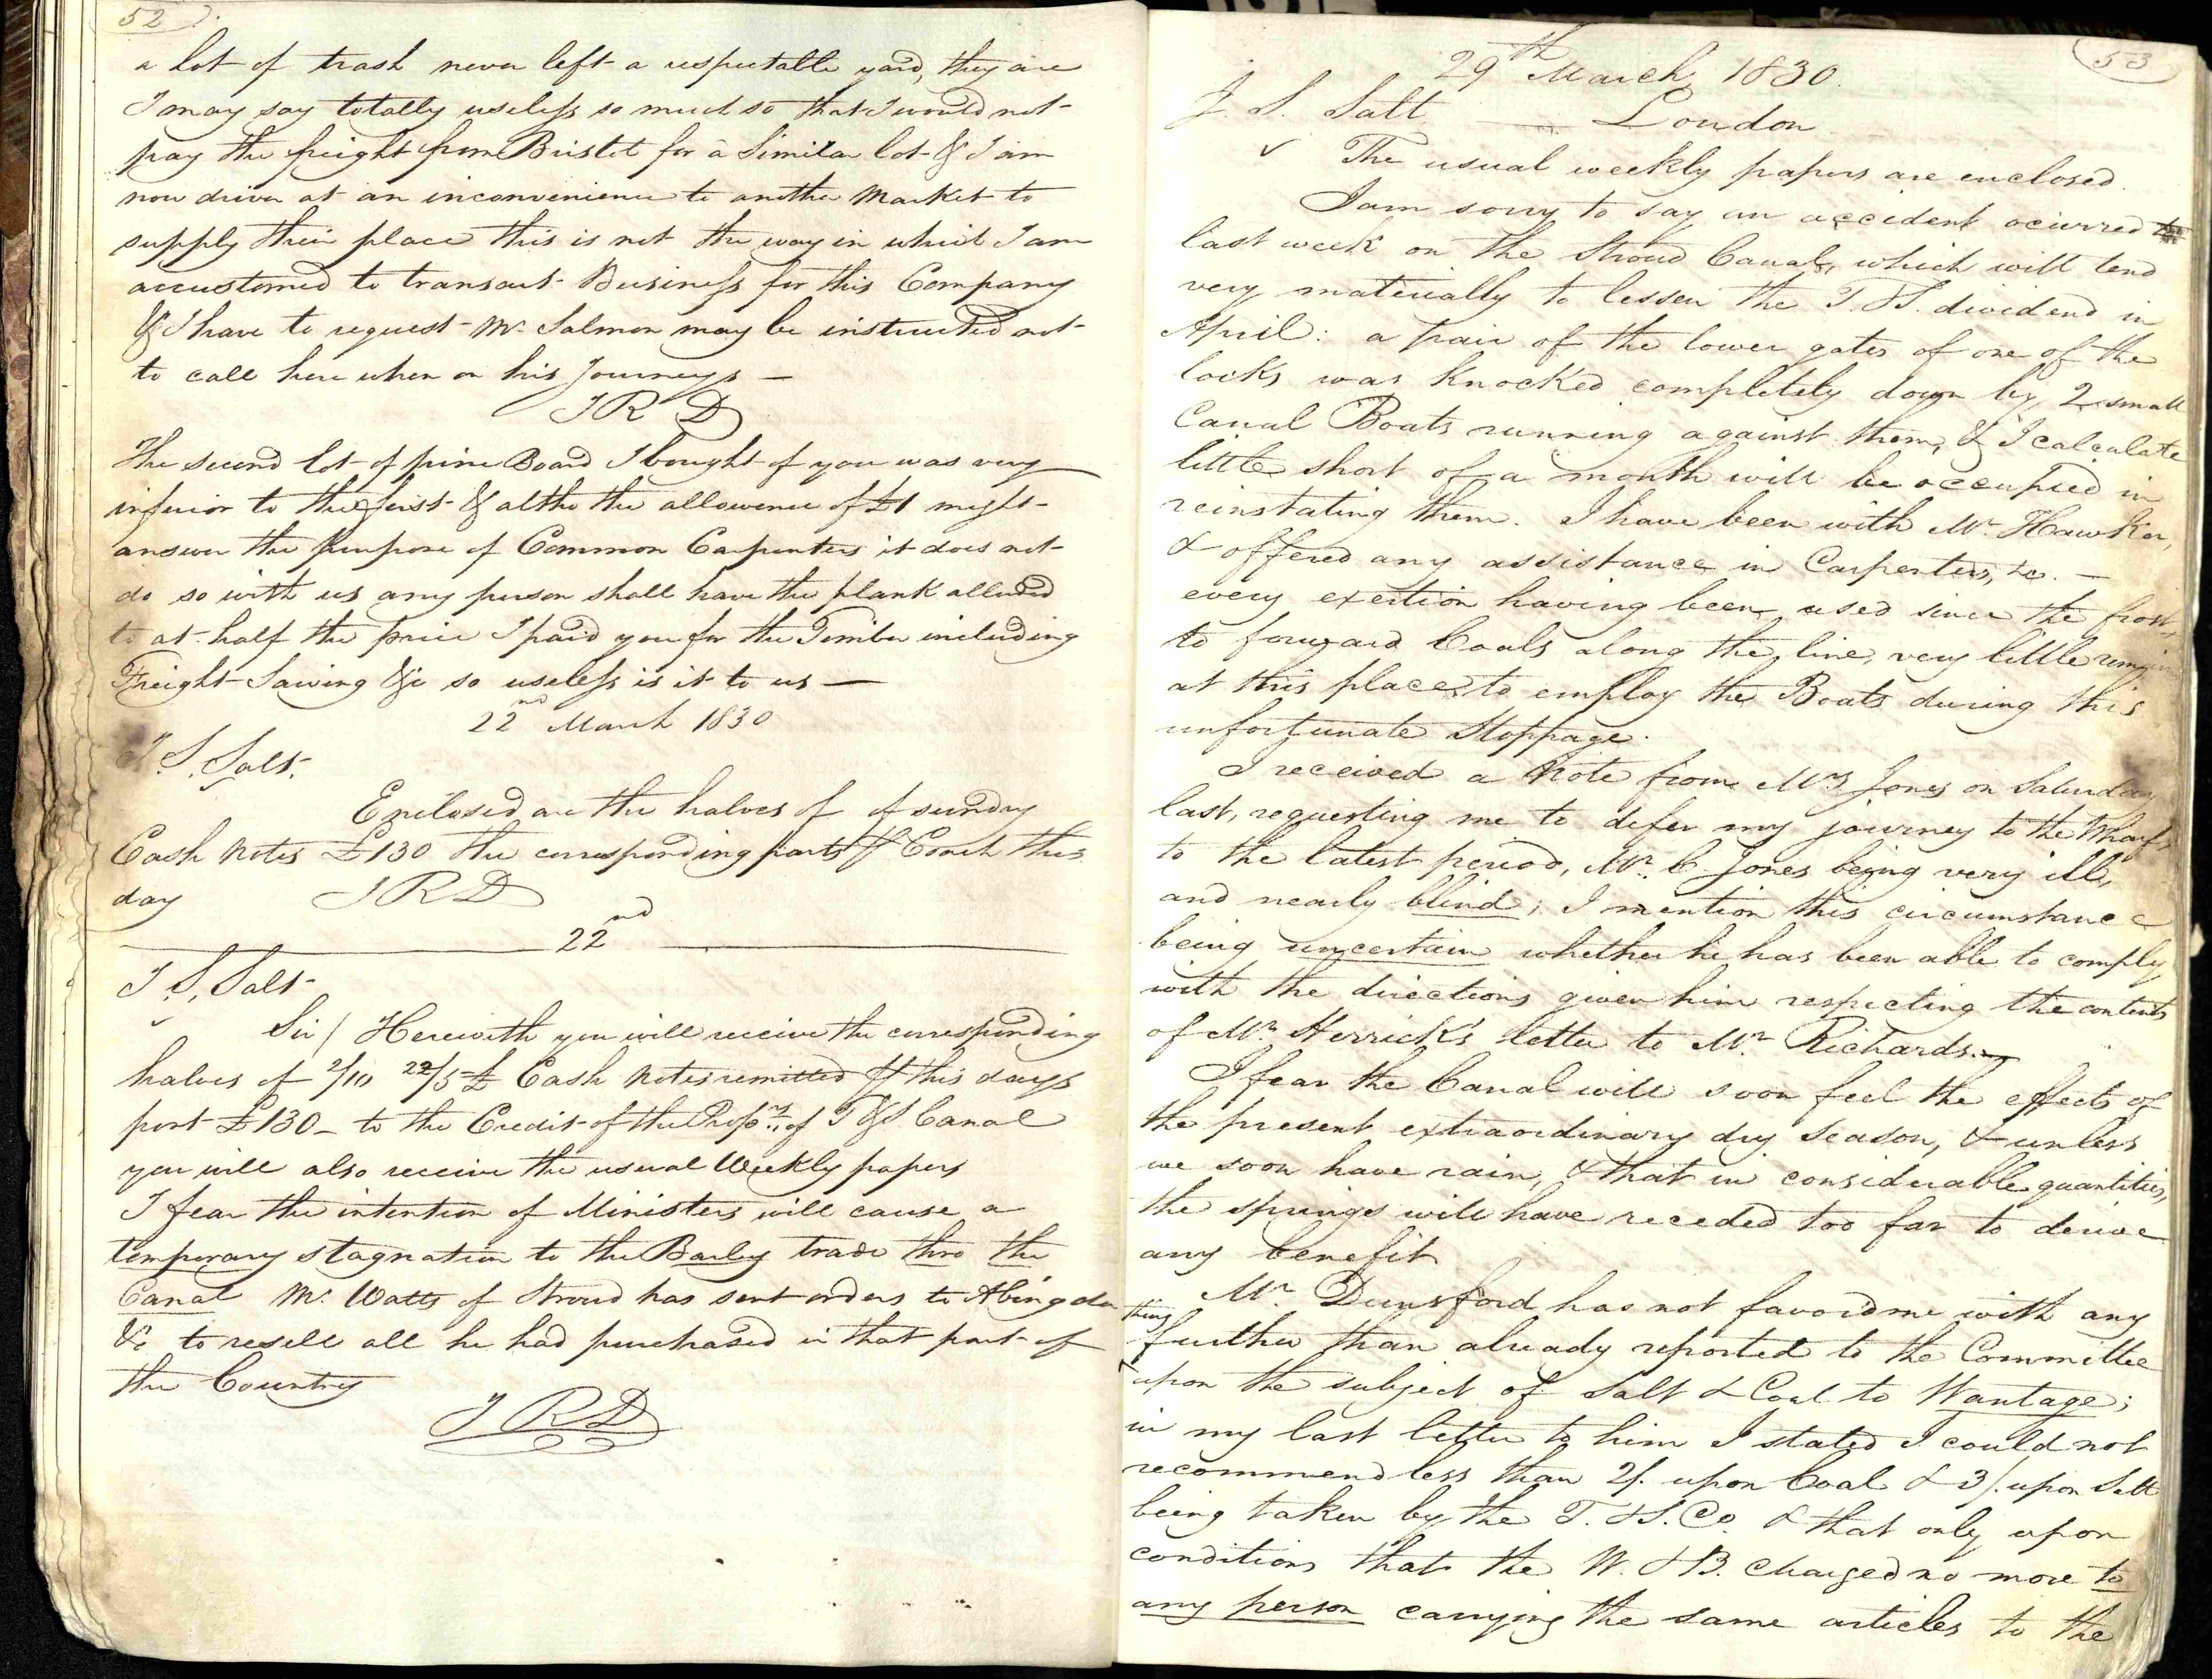 52
a lot of trash never left a respectable yard, they are
I may say totally useless so much so that I would not
pay the freight from Bristol for a Similar lot & I am
now driven at an inconvenience to another Market to
supply their place this is not the way in which I am
accustomed to transact Business for this Company
& I have to request Mr. Salmon may be instructed not
to call here when on his Journeys —
J R D
The second lot of pine Board I bought of you was very
inferior to the first & altho the allowance of £1 might
answer the purpose of Common Carpenters it does not
do so with us any person shall have the plank alluded
to at half the price I paid you for the Timber including
Freight Sawing &c so useless is it to us —
22nd March 1830
J. S. Salt.
Enclosed are the halves of of sundry
Cash Notes £130 the corresponding parts Coach this
day J R D
22nd
J S, Salt
Sir / Herewith you will receive the corresponding
halves of 2/10 22/5 £ Cash Notes remitted this days
post £130 – to the Credit of the Proprs. of T & S Canal
you will also receive the usual Weekly papers
I fear the intention of Ministers will cause a
temporary stagnation to the Barley trade thro the
Canal Mr. Watts of Stroud has sent orders to Abingdon
&c to resell all he had purchased in that part of
the Country
J R D
53
29th March 1830.
J. S. Salt — London
The usual weekly papers are enclosed.
I am sorry to say an accident ocurred
last week on the Stroud Canal, which will tend
very materially to lessen the T. & S. dividend in
April: a pair of the lower gates of one of the
locks was knocked completely down by 2 small
Canal Boats running against them, & I calculate
little short of a month will be occupied in
reinstating them. I have been with Mr. Hawker,
& offered any assistance in Carpenters, &c. —
every exertion having been used since the frost,
to forward Coals along the line, very little remains
at this place to employ the Boats during this
unfortunate Stoppage.
I received a Note from Mrs Jones on Saturday
last, requesting me to defer my journey to the Wharfs
to the latest period, Mr. C Jones being very ill,
and nearly blind; I mention this circumstance
being uncertain whether he has been able to comply
with the directions given him respecting the contents
of Mr. Herrick's letter to Mr. Richards.—
I fear the Canal will soon feel the effects of
the present extraordinary dry season, & unless
we soon have rain, & that in considerable quantities,
the springs will have receded too far to derive
any benefit
Mr. Dunsford has not favord me with any
thing further than already reported to the Committee
upon the subject of Salt & Coal to Wantage;
in my last letter to him I stated I could not
recommend less than 2/. upon Coal & 3/. upon Salt
being taken by the T. & S. Co. & that only upon
conditions that the W. & B. charged no more to
any person carrying the same articles to the